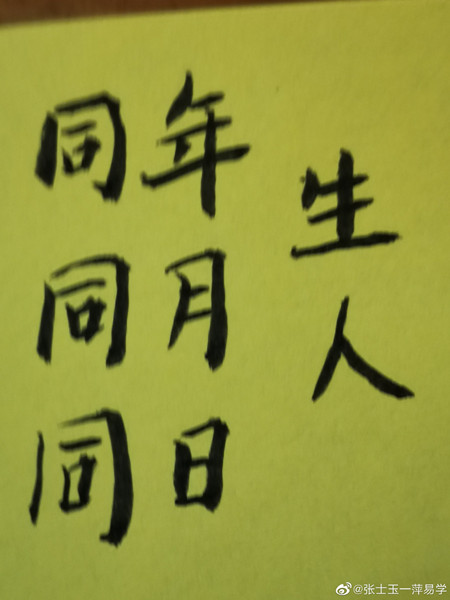 同年
同月
同日
生人
@张士玉一萍易学